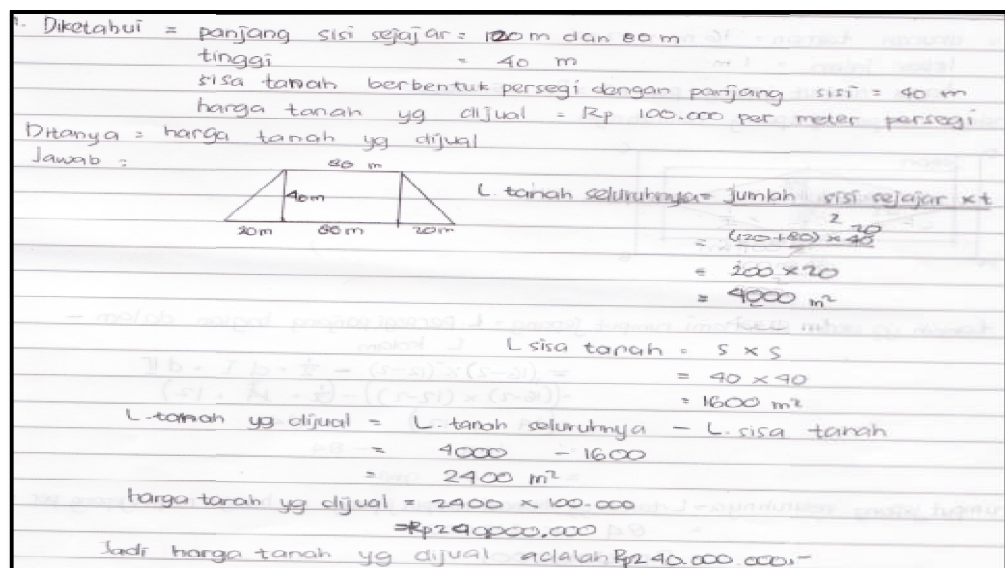 1. Diketahui = panjang sisi sejajar = 120 m dan 80 m
tinggi = 40 m
sisa tanah berbentuk persegi dengan panjang sisi = 40 m
harga tanah yg dijual = Rp 100.000 per meter persegi
Ditanya = harga tanah yg dijual
Jawab :
80 m
40m
20m 80m 20m
L. tanah seluruhnya = jumlah sisi sejajar x t
2
= (120+80) x 40 20
= 200 x 20
= 4000 m²
L sisa tanah = s x s
= 40 x 40
= 1600 m²
L. tanah yg dijual = L. tanah seluruhnya - L. sisa tanah
= 4000 - 1600
= 2400 m²
harga tanah yg dijual = 2400 x 100.000
= Rp240000.000
Jadi harga tanah yg dijual adalah Rp240.000.000,-